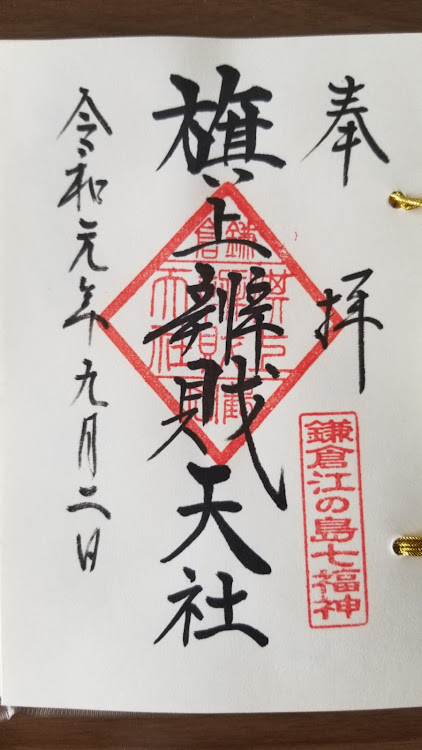 奉拝
旗上辨財天社
令和元年九月二日
鎌倉江の島七福神
鎌倉